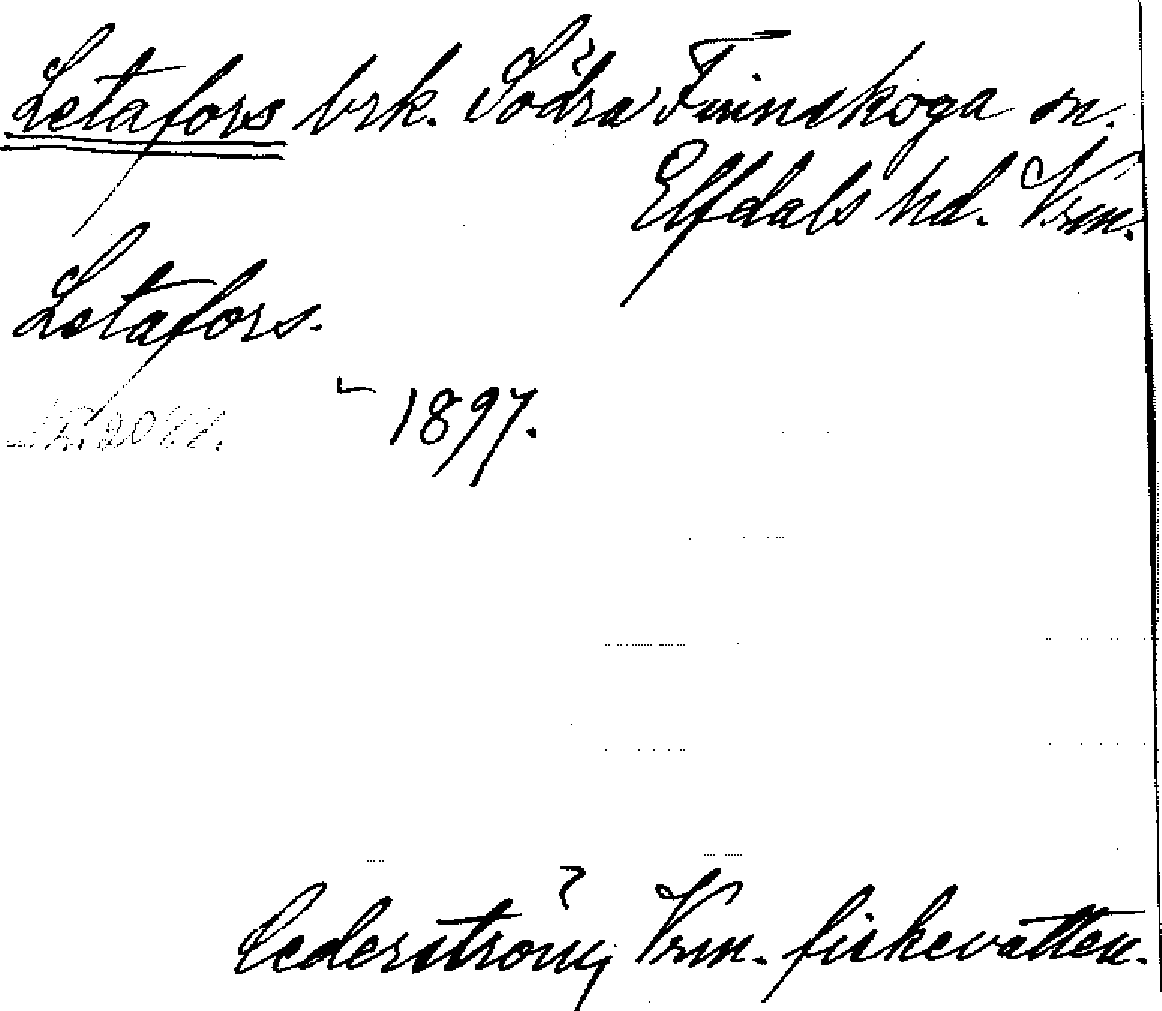 Letafors brk. Södra Finnskoga sn.
Elfdals hd. Vrm.
Letafors.
1897.
Cederström, Vrm. fiskevatten.